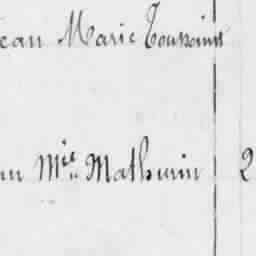 ean Marie Toussaint
an Mie Mathurin 2